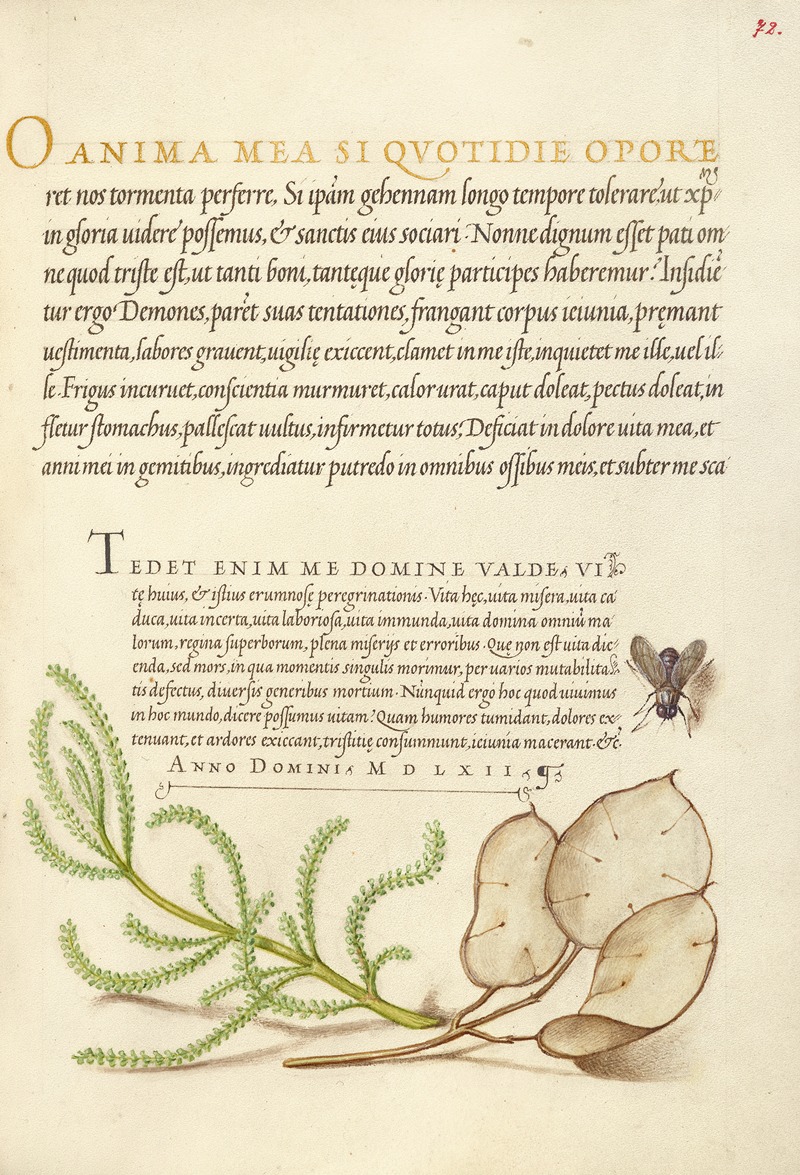 72.
O ANIMA MEA SI QVOTIDIE OPORE
ret nos tormenta perferre, Si ipãm gehennam longo tempore tolerare: ut xp̃m
in gloria uidere possemus, & sanctis eius sociari. Nonne dignum esset pati om-
ne quod triste est, ut tanti boni, tantęque glorię participes haberemur? Insidiē
tur ergo Demones, parēt suas tentationes, frangant corpus ieiunia, pręmant
uestimenta, labores grauent, uigilię exiccent, clamet in me iste, inquietet me ille, uel il-
le. Frigus incuruet, conscientia murmuret, calor urat, caput doleat, pectus doleat, in
fletur stomachus, pallescat uultus, infirmetur totus: Deficiat in dolore uita mea, et
anni mei in gemitibus, ingrediatur putredo in omnibus ossibus meis, et subter me sca
TEDET ENIM ME DOMINE VALDE, VI
tę huius, & istius erumnosę peregrinationis. Vita hęc, uita misera, uita ca
duca, uita incerta, uita laboriosa, uita immunda, uita domina omniũ ma
lorum, regina superborum, plena miserijs et erroribus. Quę non est uita dic-
enda, sed mors, in qua momentis singulis morimur, per uarios mutabilita-
tis defectus, diuersis generibus mortium. Nunquid ergo hoc quod uiuimus
in hoc mundo, dicere possumus uitam? Quam humores tumidant, dolores ex-
tenuant, et ardores exiccant, tristitię consummunt, ieiunia macerant. &c.
ANNO DOMINI, M D L X I I,